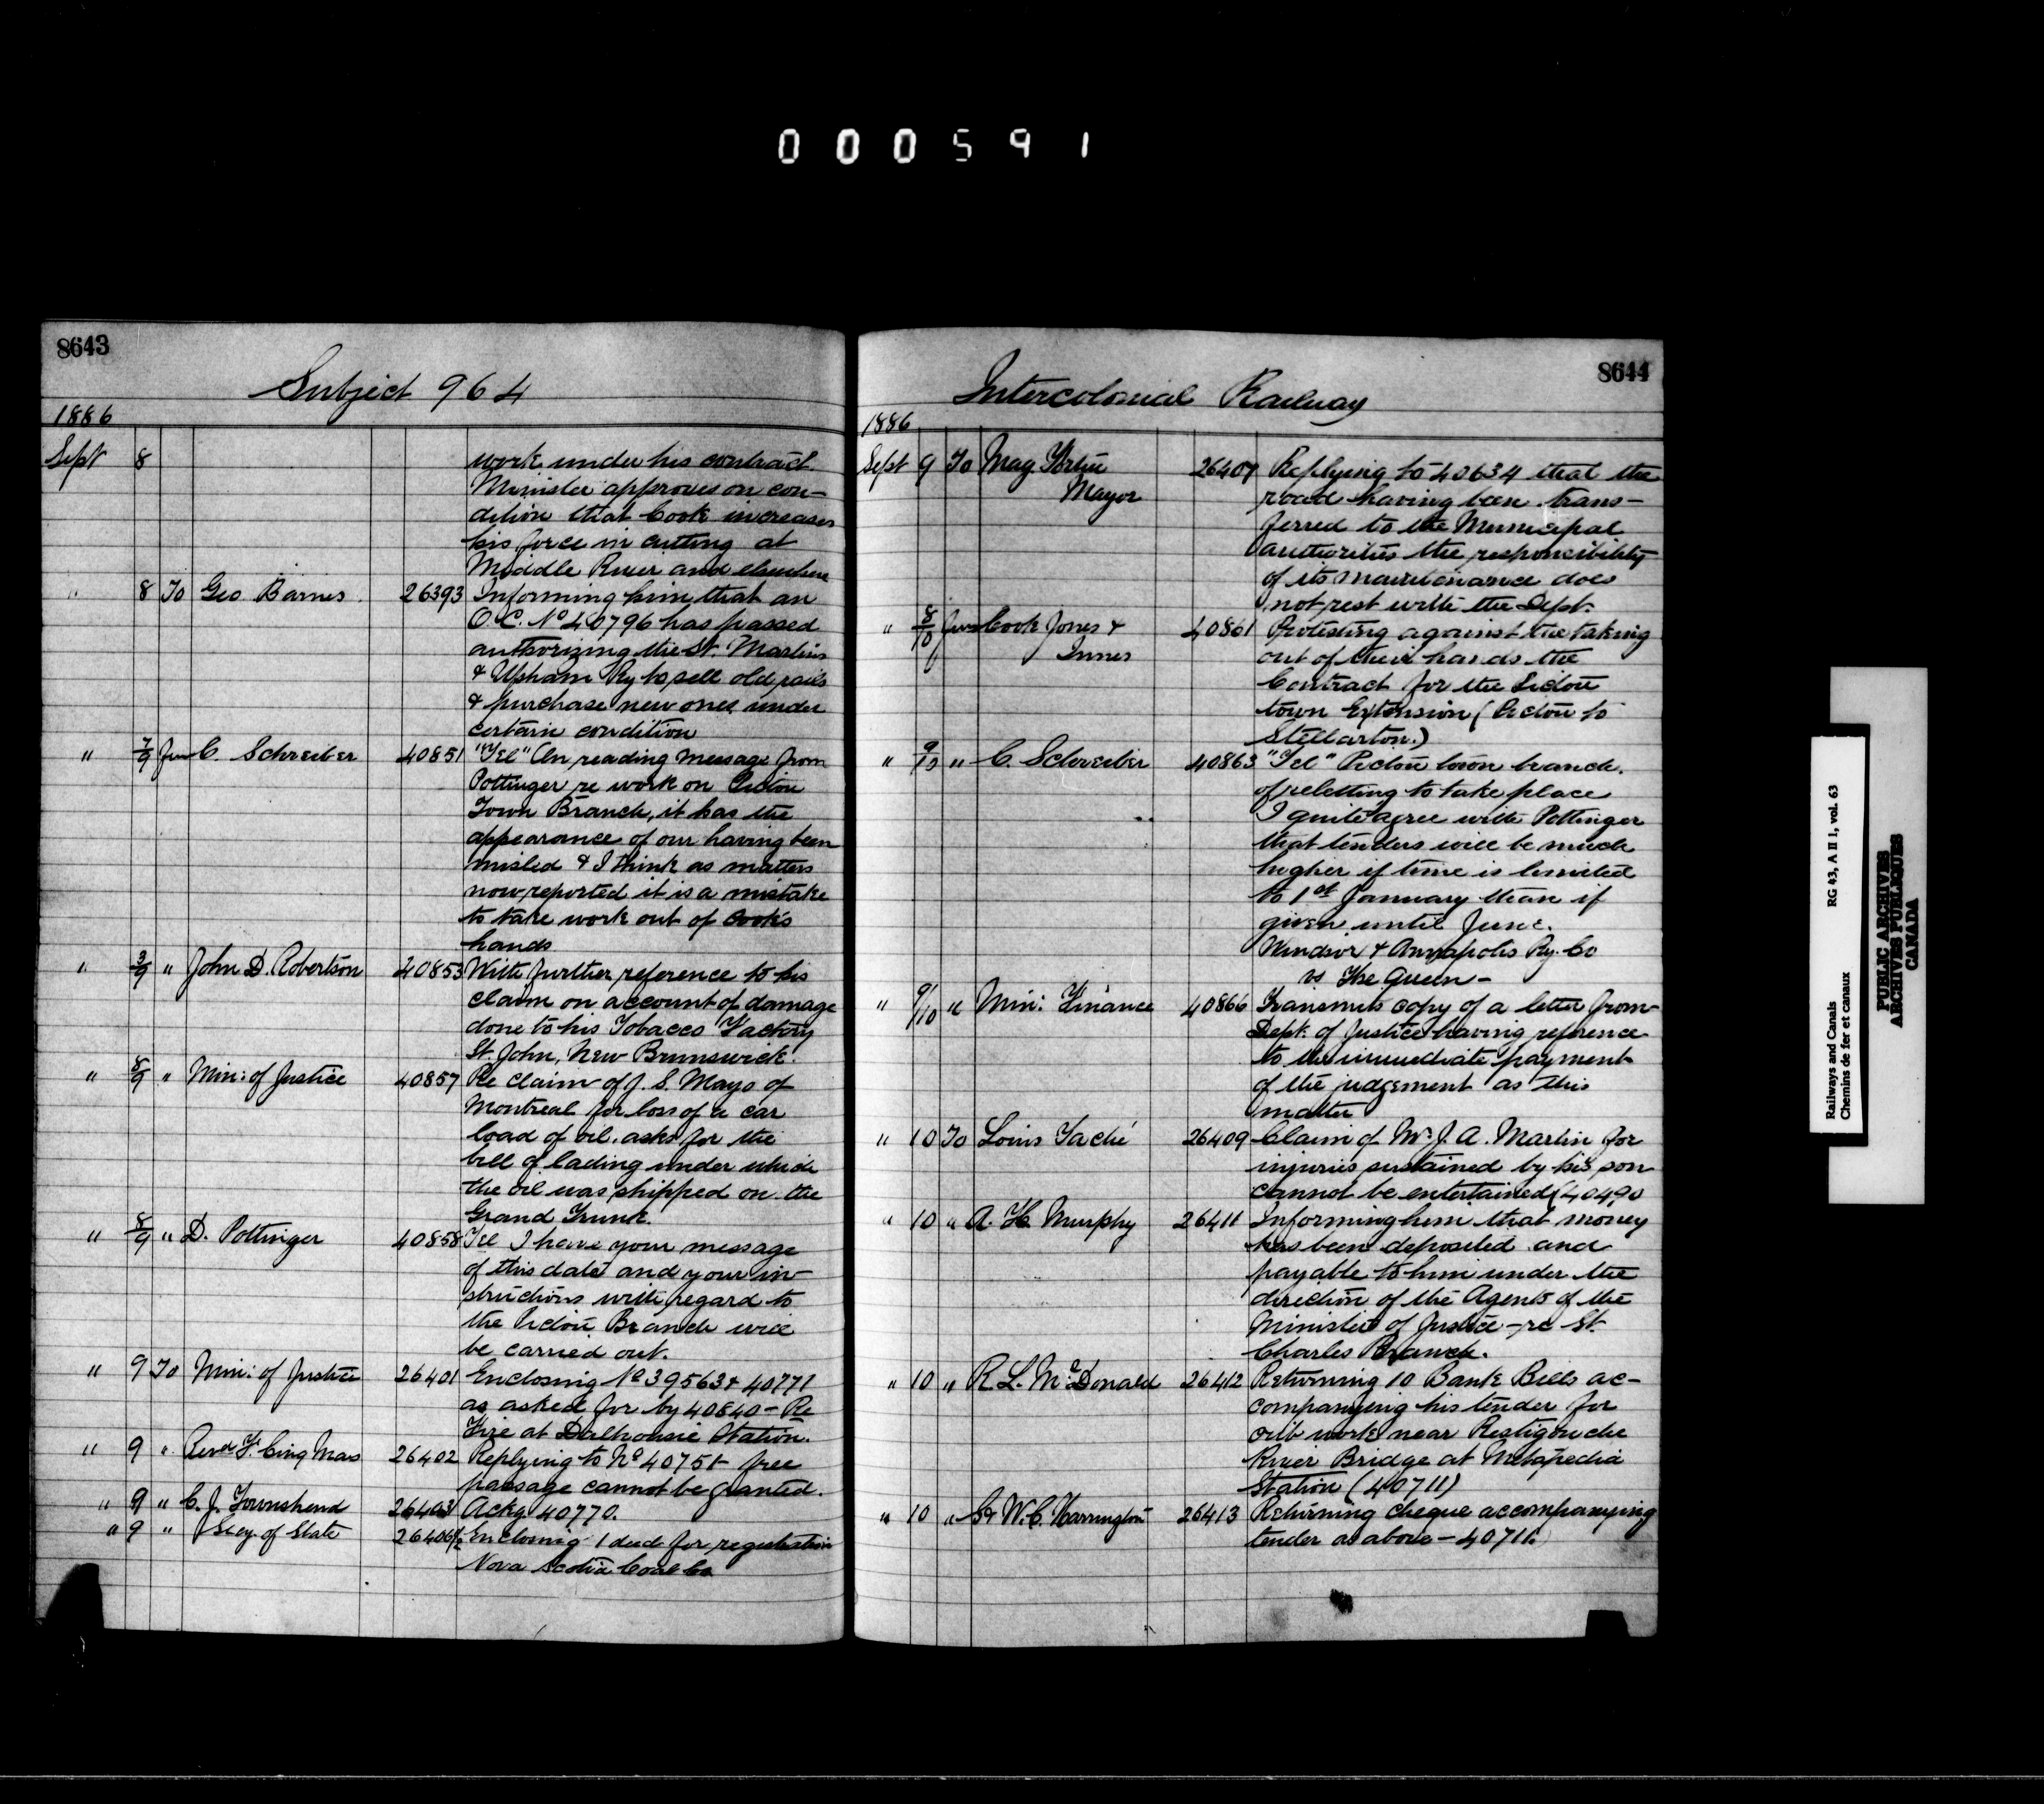 000591
8643
Subject 964
1886
Sept 8 work under his contract
Minister approves on con-
dition that Cook increases
his force in cutting at
Middle River and elsewhere
" 8 To Geo Barnes 26393 Informing him that an
O.C. No 40796 has passed
authorizing the St. Martins
& Upham Ry to sell old rails
& purchase new ones under
certain condition
" 7/9 from C. Schreiber 40851 "Tel" On reading message from
Pottinger re work on Pictou
Town Branch, it has the
appearance of our having been
misled & I think as matters
now reported it is a mistake
to take work out of Cook's
hands
" 3/9 " John D. Robertson 40853 With further reference to his
claim on account of damage
done to his Tobacco Factory
St. John, New Brunswick.
" 8/9 " Min: of Justice 40857 Re claim of J. S. Mayo of
Montreal for loss of a car
load of oil. asks for the
bill of lading under which
the oil was shipped on the
Grand Trunk.
" 8/9 " D. Pottinger 40858 Tel I have your message
of this date and your in-
structions with regard to
the Pictou Branch will
be carried out.
" 9 To Min: of Justice 26401 Enclosing No 39563 & 40771
as asked for by 40840 - Re
Fire at Dalhousie Station.
" 9 " Revd F. Cinq Mars 26402 Replying to No 40751 free
passage cannot be granted.
" 9 " C. J. Townshend 26403 Ackg 40770.
" 9 " Secy. of State 26406½ Enclosing 1 deed for registration
Nova Scotia Coal Co
8644
Intercolonial Railway
1886
Sept 9 To Mag Fortin 26407 Replying to 40634 that the
Mayor road having been trans-
ferred to the Municipal
authorities the responsibility
of its maintenance does
not rest with the Dept.
" 8/10 from Cook Jones & 40861 Protesting against the taking
Innes out of their hands the
Contract for the Pictou
town Extension (Pictou to
Stellarton.)
" 9/10 " C. Schreiber 40863 "Tel" Pictou town branch.
of reletting to take place
I quite agree with Pottinger
that tenders will be much
higher if time is limited
to 1st January than if
given until June.
Windsor & Annapolis Ry. Co
vs The Queen -
" 9/10 " Min: Finance 40866 Transmits copy of a letter from
Dept. of Justice having reference
to the immediate payment
of the judgement as this
matter
" 10 To Louis Taché 26409 Claim of Mr J. A. Martin for
injuries sustained by his son
cannot be entertained (40490
" 10 " A. H. Murphy 26411 Informing him that money
has been deposited and
payable to him under the
direction of the Agents of the
Minister of Justice - re St.
Charles Branch.
" 10 " R. L. McDonald 26412 Returning 10 Bank Bills ac-
companying his tender for
crib work near Restigouche
River Bridge at Metapedia
Station (40711)
" 10 " W. C. Harrington 26413 Returning cheque accompanying
tender as above - 40711.
Railways and Canals RG 43, A II 1, vol. 63
Chemins de fer et canaux
PUBLIC ARCHIVES
ARCHIVES PUBLIQUES
CANADA